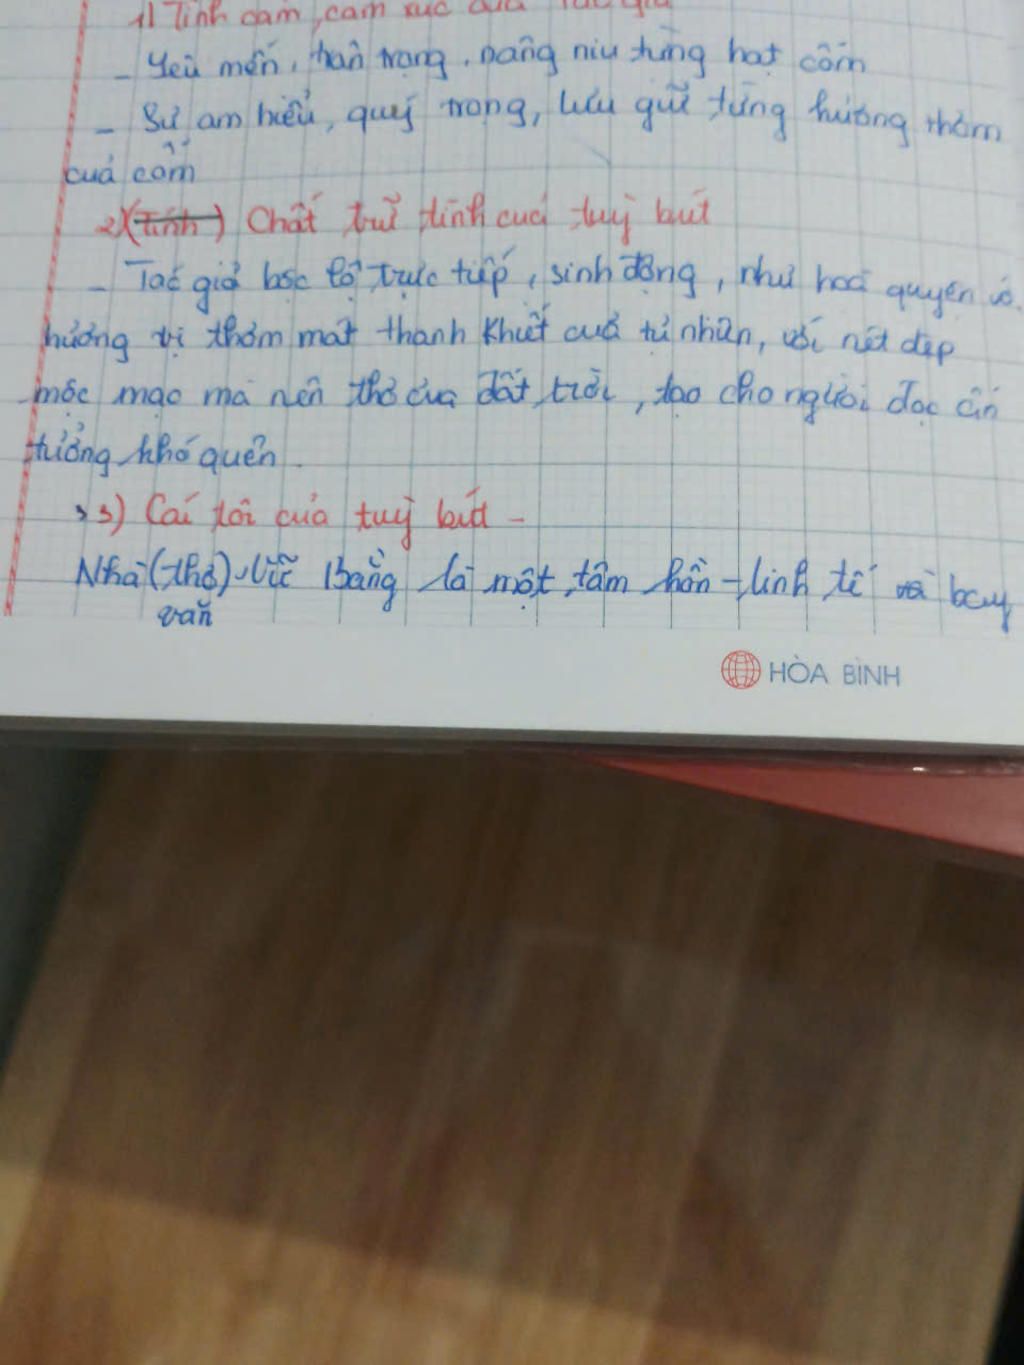 1) Tình cảm, cảm xúc của tác giả
- Yêu mến, trân trọng, nâng niu từng hạt cốm
- Sự am hiểu, quý trọng, lưu giữ từng hương thơm
của cốm
2) (Tính) Chất trữ tình của tuỳ bút
- Tác giả bộc lộ trực tiếp, sinh động, như hoà quyện
hương vị thơm mát thanh khiết của tự nhiên, với nét đẹp
mộc mạc mà nên thơ của đất trời, tạo cho người đọc ấn
tượng khó quên
3) Cái tôi của tuỳ bút -
Nhà (thơ) Vũ Bằng là một tâm hồn tinh tế và bay
văn
HÒA BÌNH